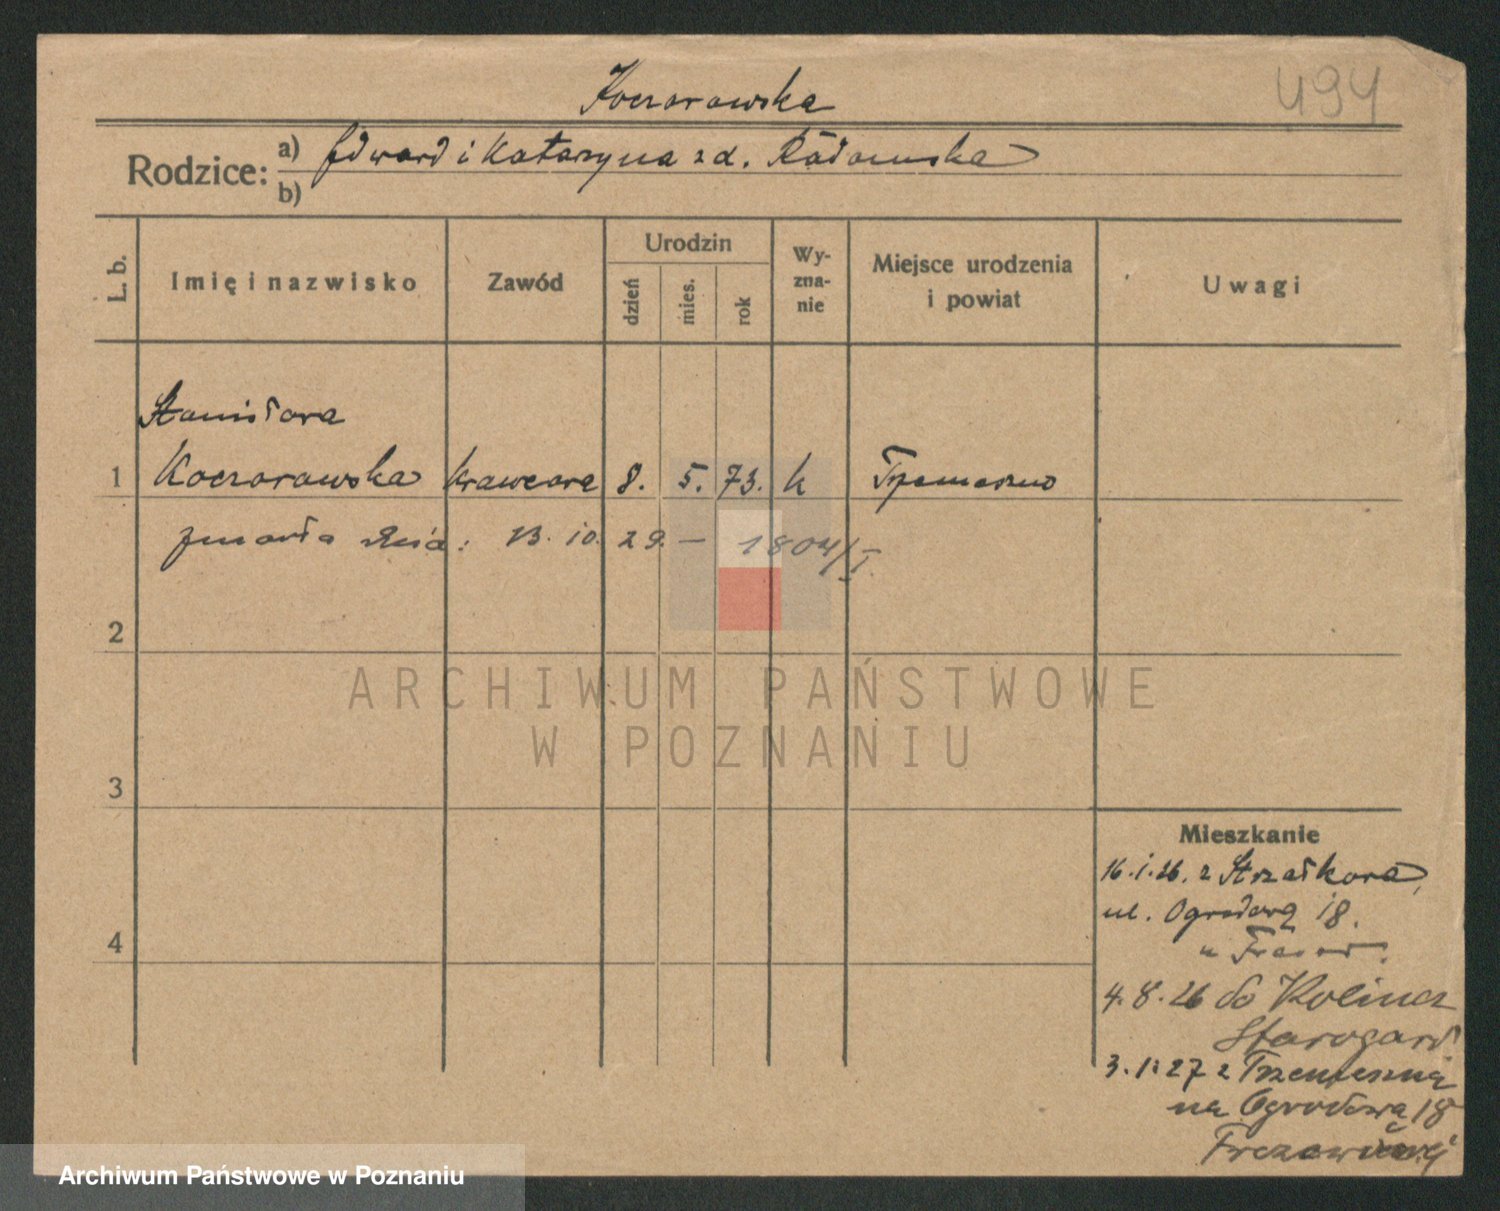 Koczorowska
494
Rodzice: a) Edward i Katarzyna z d. Radomska
b)
L. b.
Imię i nazwisko
Zawód
Urodzin
dzień
mies.
rok
Wy-
zna-
nie
Miejsce urodzenia
i powiat
Uwagi
Stanisława
1 Koczorowska krawcowa 8. 5. 73. k Trzemeszno
zmarła dnia: 13. 10. 29. – 1804/I.
2
3
4
ARCHIWUM PAŃSTWOWE
W POZNANIU
Mieszkanie
16.1.26. z Strzałkowa,
ul. Ogrodowa 18.
u
4.8.26 do
Starogard
3.1.27 z Trzemeszna
na Ogrodową 18
Archiwum Państwowe w Poznaniu